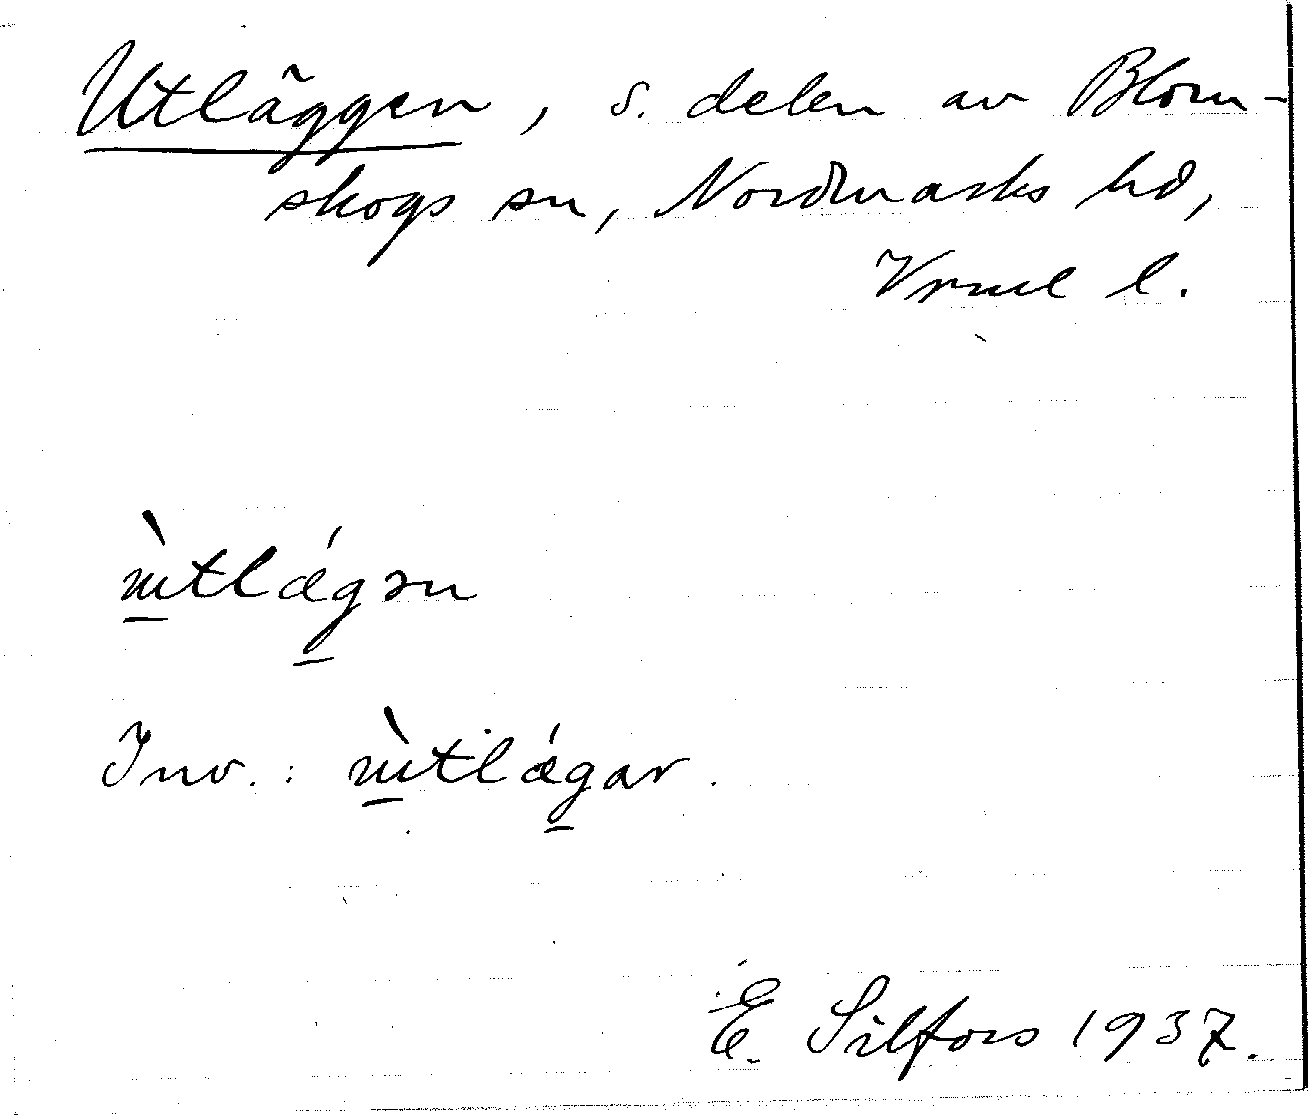 Utläggen, s. delen av Blom-
skogs sn, Nordmarks hd,
Vrml l.
ùtlǽgən
Inv.: ùtlǽgar.
E. Silfors 1937.